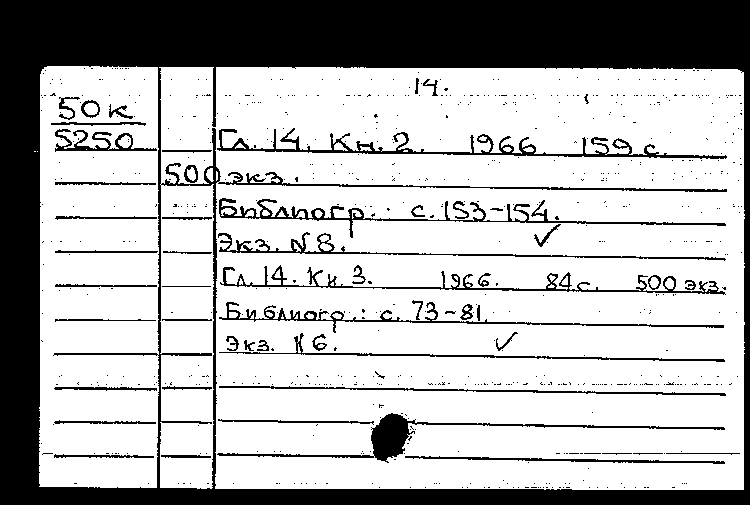 14.
50к
5250
Гл. 14. Кн. 2. 1966. 159 с.
500 экз.
Библиогр.: с. 153-154.
Экз. N 8. ✓
Гл. 14. Кн. 3. 1966. 84 с. 500 экз.
Библиогр.: с. 73-81.
Экз. N 6. ✓